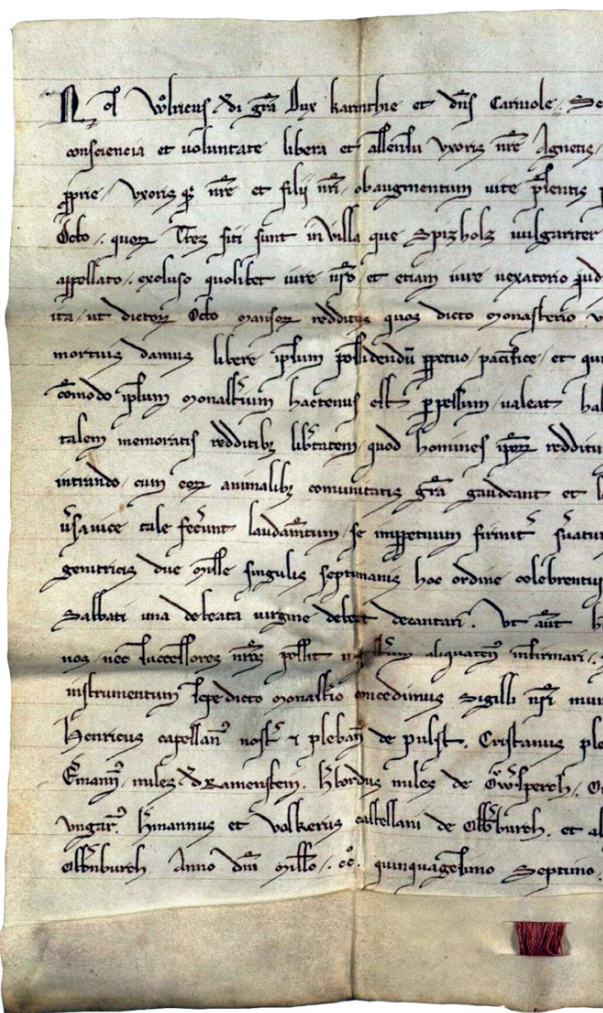 Nos Vlricus di gra Dux karinthie et dns Carniole. Se
consciencia et uoluntate libera et assensu vxoris nre Agnetis,
pprie, vxoris qz nre et filij nri, ob augmentum uite psentis p
Octo, quorz Tres siti sunt in villa que Spizholz uulgariter
appellato, excluso quolibet iure nro et etiam iure uexatorio
ita, ut dictorz Octo mansorz redditus quos dicto monasterio v
mortuis damus libere ipsum possidendu ppetuo, pacifice, et qui
comodo ipsum monastium hactenus est ppessum, ualeat hab
talem memoratis redditibz libtatem, quod homines ipsorz reddituu
intrando, cum eorz animalibz comunitatis gra gaudeant et
uice tale fecerunt laudamtum, se imppetuum
genitricis due misse singulis septimanis hoc ordine celebrentur
Sabbati una de beata uirgine debeat decantari. Vt aut h
nos, nec successores nros possit aliquaten infirmari,
instrumentum sepedicto monastio concedimus Sigilli nri mun
Henricus capellan nost z pleban de pulst. Cristanus ple
miles de Ramenstein. miles de
vngar. hmannus et Volkerus castellani de et al
Anno dni millo. cc. quinquagesimo Septimo.